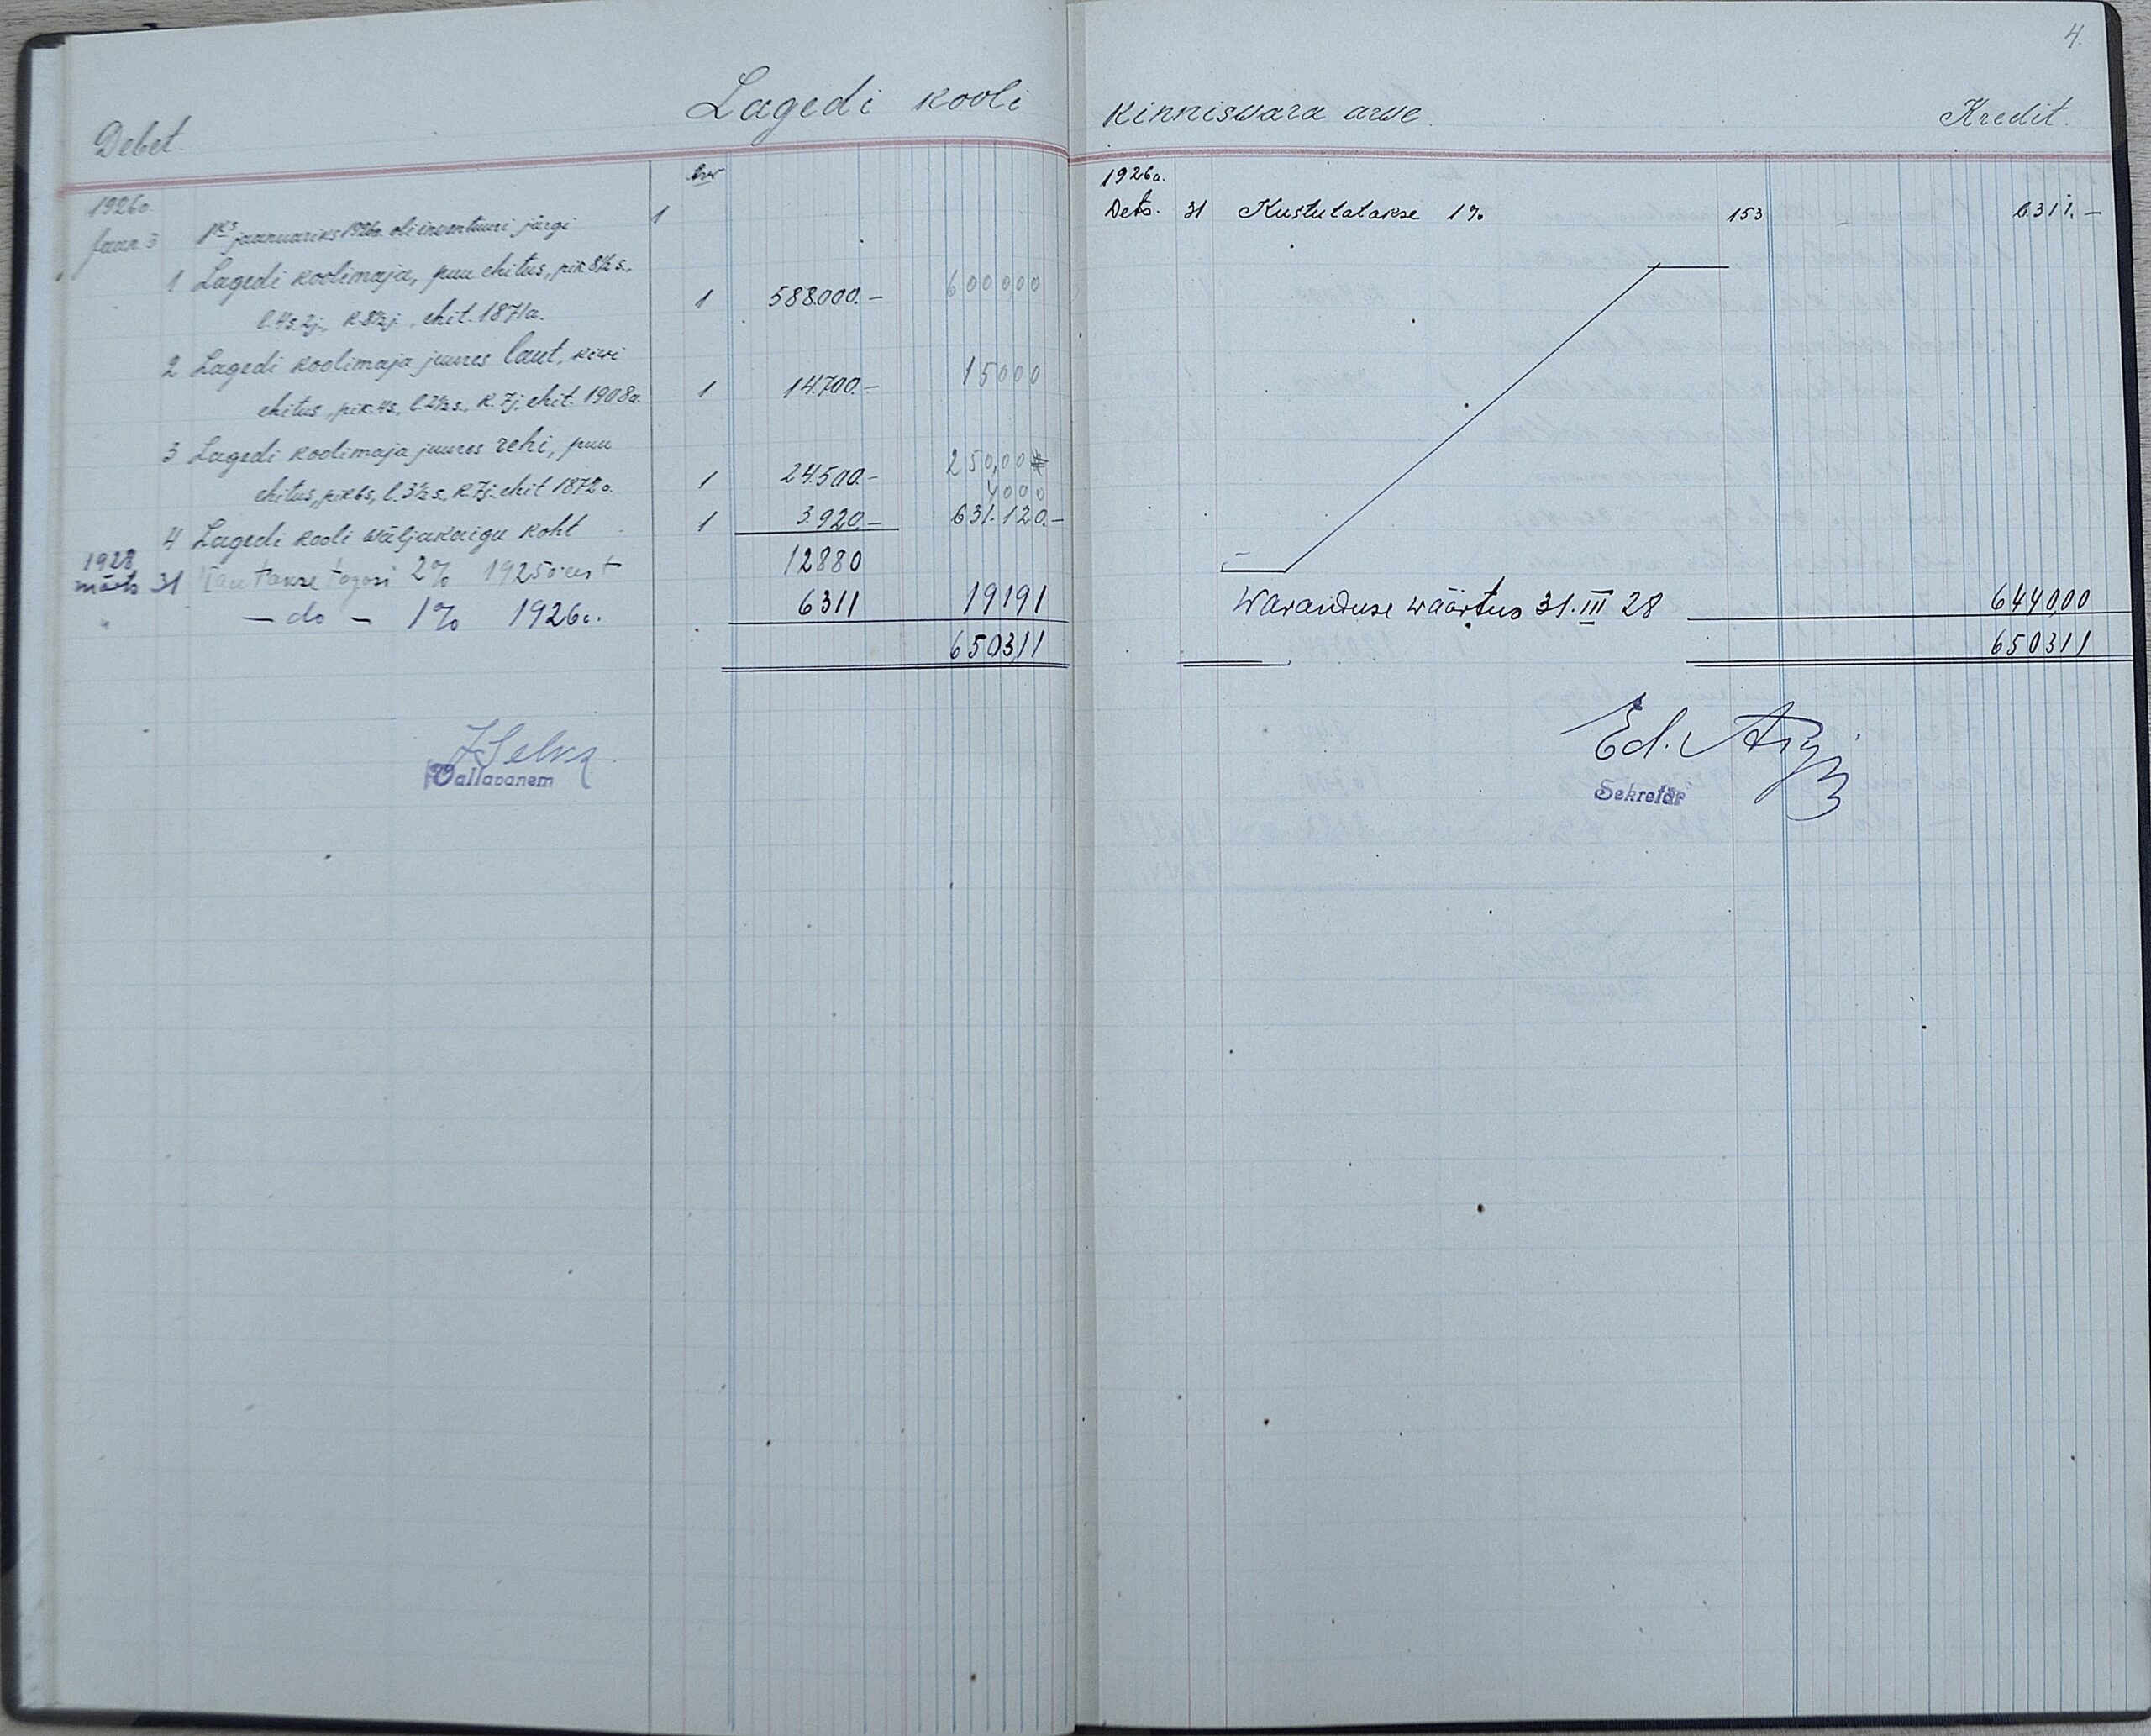 4.
Lagedi kooli kinniswara arwe.
Debet. Kredit.
1926a.
Jaan. 3 1ks jaanuariks 1926a. oli inventuuri järgi 1
1 Lagedi koolimaja, puu ehitus, pik. 8½ s.,
l. 4s. 2j., k. 8½ j., ehit. 1871a. 1 588.000.- 600000
2 Lagedi koolimaja juures laut, kiwi
ehitus, pik. 4s., l. 2½ s., k. 7j. ehit. 1908a. 1 14.700.- 15000
3 Lagedi koolimaja juures rehi, puu
ehitus, pik 6s, l. 3½ s., k. 7j. ehit 1872a. 1 24.500.- 25000
4000
4 Lagedi kooli wäljakäigu koht 1 3.920.- 631.120.-
1928
märts 31 tagasi 2% 1925a eest 12880
" — do — 1% 1926a. 6311 19191
650311
J Selva
Vallavanem
1926a.
Dets. 31 Kustutatakse 1% 153 6311.-
Waranduse wäärtus 31.III 28 644000
650311
Ed.
Sekretär